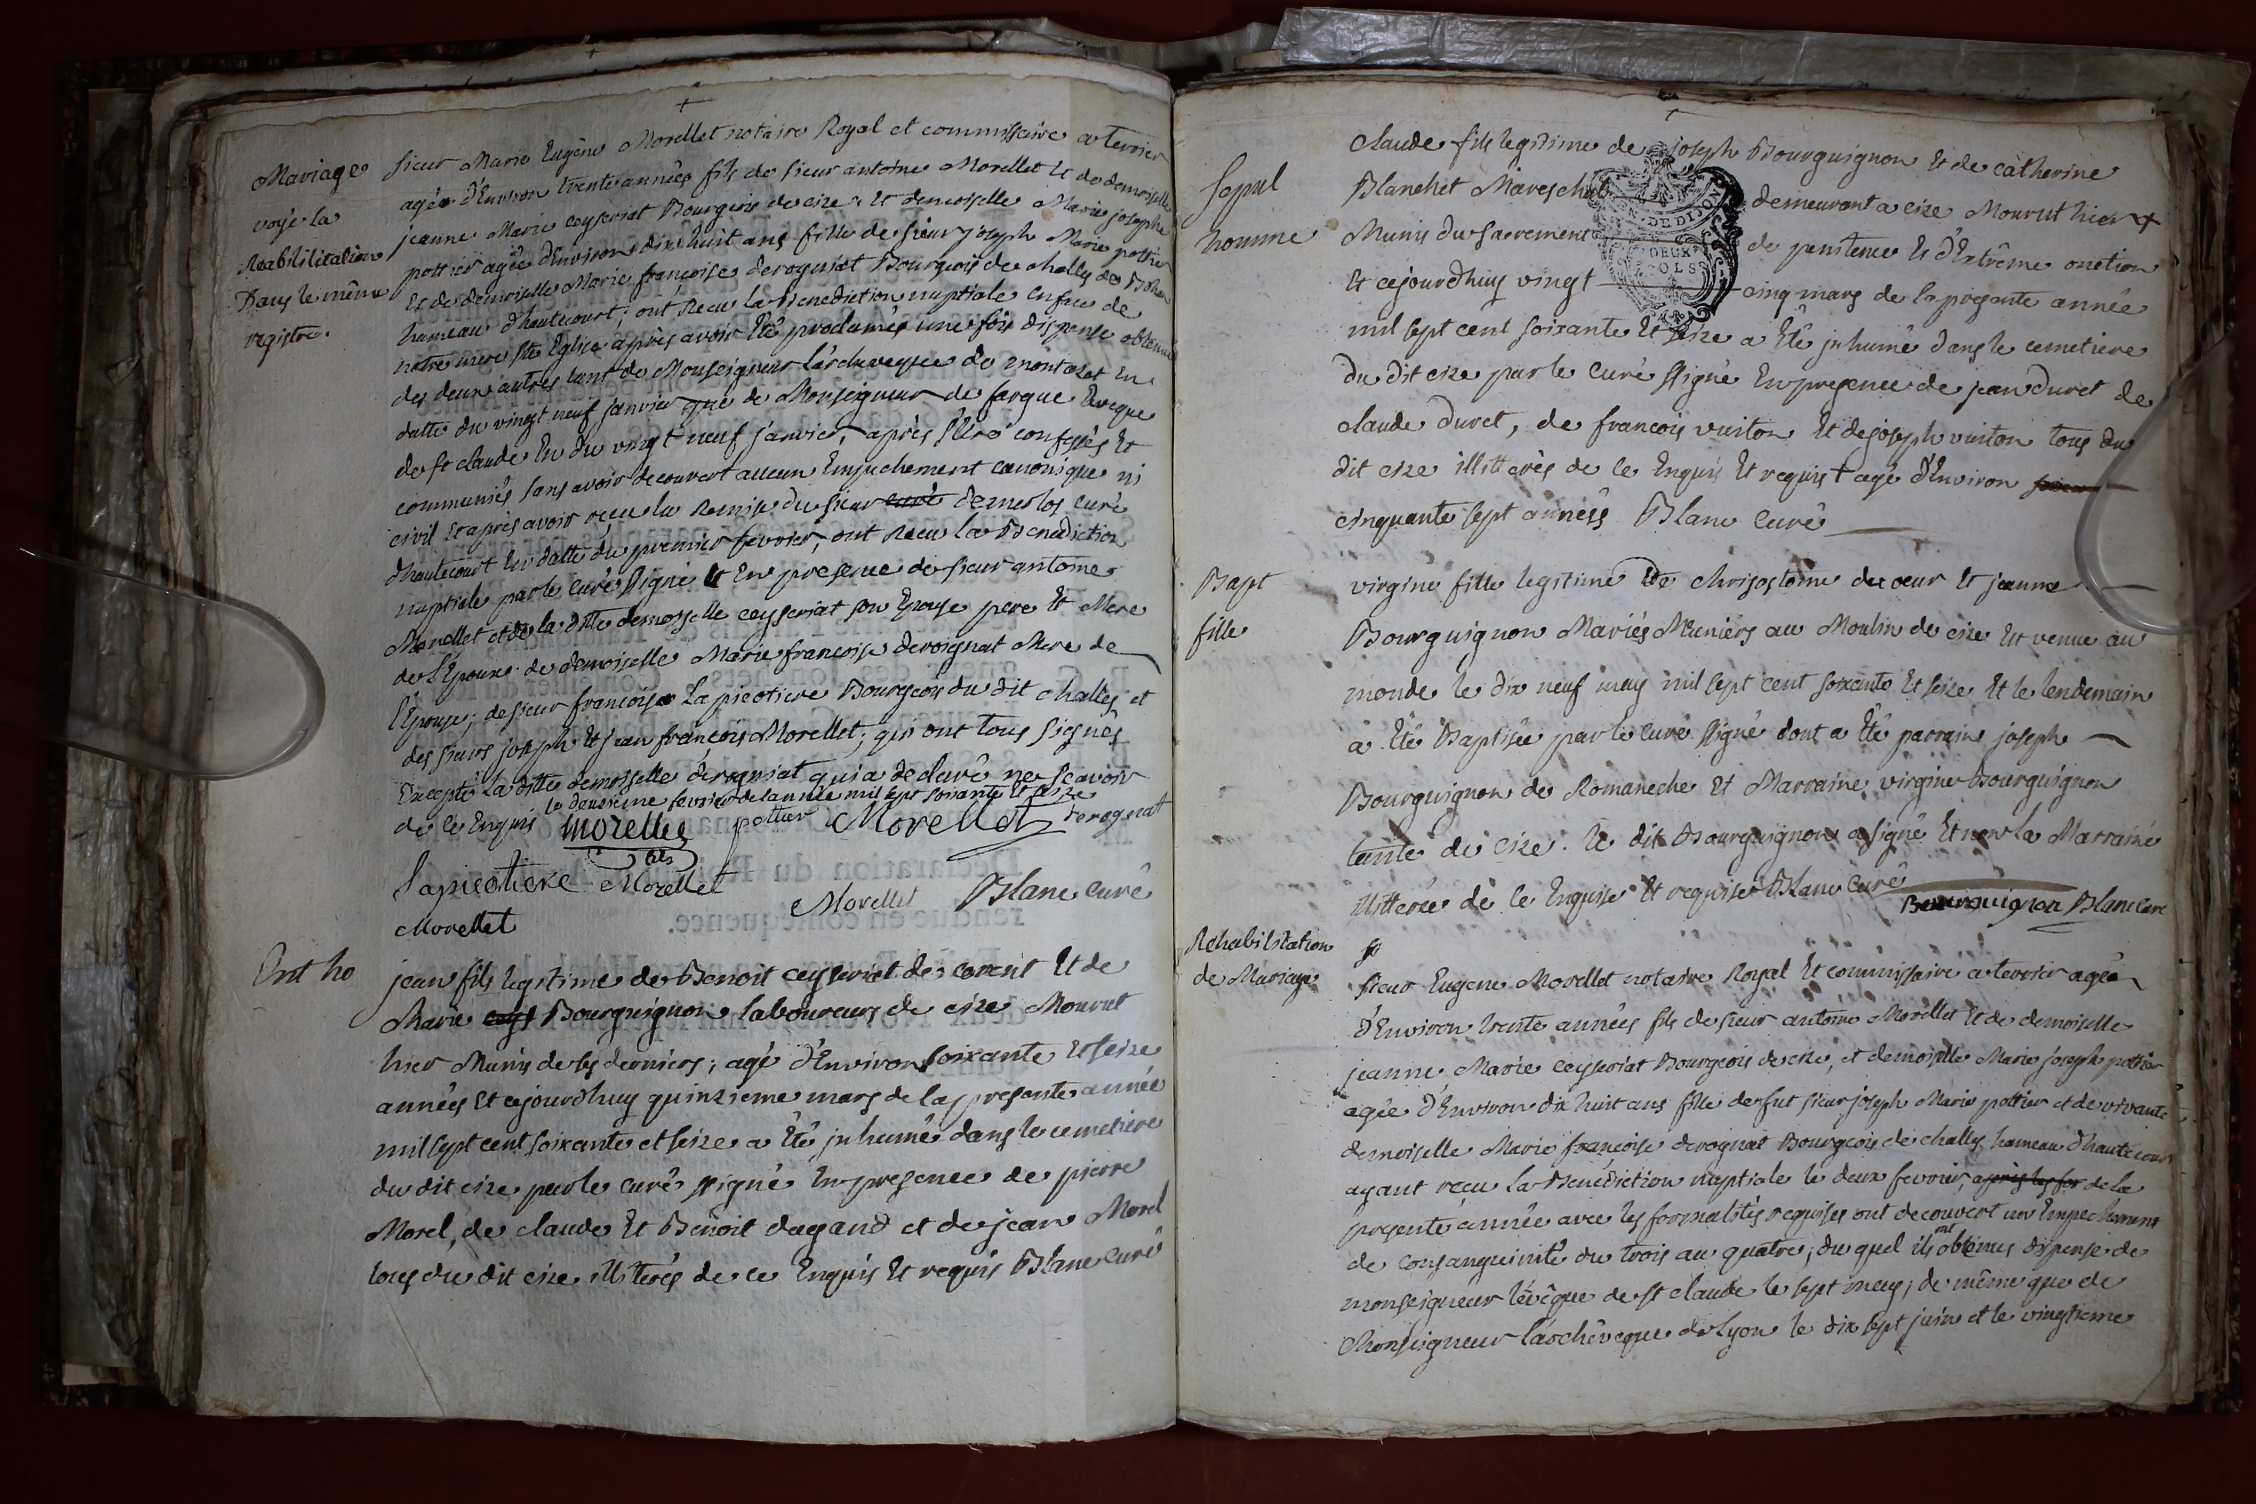 Mariage
voyé la
Reabilitation
Dans le même
registre.
sieur Marie Eugêne Morellet notaire Royal et commissaire a terrier
agée d'Environ trente années fils de sieur antoine Morellet et de demoiselle
jeanne Marie ceyseriat Bourgeois de cize. Et demoiselle Marie josephe
pottier agée d'Environ dix huit ans fille de sieur joseph Marie pottier
Et de demoiselle Marie françoise derognat Bourgeois de challes de Bohan
hameau d'hautecourt; ont Recu la Benediction nuptiale en face de
notre mere ste Eglise après avoir Eté proclamés une fois dispense obtenue
des deux autres tant de Monseigneur l'archeveque de montazet En
datte du vingt neuf janvier que de Monseigneur de fargue Eveque
de st claude En du vingt neuf janvier, après s'être confessés Et
communiés sans avoir decouvert aucun Empechement canonique ni
civil Et après avoir recu la Remise du sieur curé demerlos curé
d'hautecourt En datte du premier fevrier, ont Recu la Benediction
nuptiale par le curé ssigné Et En presence de sieur antoine
Morellet et de la ditte demoiselle ceyseriat son Epouse pere Et Mere
de l'Epoux de demoiselle Marie francoise deroignat Mere de
l'Epouse; de sieur francoise La picotiere Bourgeois du dit challes et
des sieurs joseph Et jean françois Morellet; qui ont tous signés
Excepté La ditte demoiselle derogniat qui a declaré ne scavoir
le deuxieme fevrier de l'année mil sept soixante Et seize
de ce Enquis Morellet pottier Morellet derognatt
fils
Lapicotiere Morellet
Morellet Blanc Curé
Morellet
Ent ho
jean fils legitime de Benoit ceyseriat de corent Et de
Marie ceys Bourguignon laboureurs de cize Mourut
hier Munis de ses derniers; agé d'Environ soixante Et seize
années Et cejourdhuy quinzieme mars de la presente année
mil sept cent soixante et seize a Eté jnhumé dans le cemetiere
du dit cize par le curé ssigné En presence de pierre
Morel, de claude Et Benoit dagand et de jean Morel
tous du dit cize illiterés de ce Enquis Et requis Blanc Curé
Sepul
homme
Claude fils legitime de joseph Bourguignon Et de catherine
Blanchet Mareschal demeurant a cize Mourut hier +
Munis du sacrement de penitence Et d'Extrême onction
Et cejourdhuy vingt cinq mars de la presente année
mil sept cent soixante Et seize a Eté jnhumé dans le cemetiere
du dit cize par le Curé ssigné En presence de jean duret de
claude duret, de francois vuiton Et de joseph vuiton tous du
dit cize illitterés de ce Enquis Et requis + agé d'Environ
cinquante sept années Blanc Curé
GEN. DE DIJON
DEUX
SOLS
Bapt
fille
virgine fille legitime de chrisostome ducoeur Et jeanne
Bourguignon Mariés Meuniers au Moulin de cize Est venue au
monde le dix neuf may mil sept cent soixante Et seize Et le lendemain
a Eté Baptisée par le curé ssigné dont a Eté parrain joseph
Bourguignon de Romaneche Et Marraine virgine Bourguignon
tante de cize. le dit Bourguignon a signé Et non la Marraine
illitterée de ce Enquise Et requise Blanc Curé
Bourguignon Blanc Curé
Rehabilitation
de Mariage
Sieur Eugene Morellet notaire Royal Et commissaire a terrier agée
d'Environ trente années fils de sieur antoine Morellet Et de demoiselle
jeanne Marie ceyseriat Bourgeois de cize, et demoiselle Marie joseph pottier
agée d'Environ dix huit ans fille de fut sieur joseph Marie pottier et de vivante
demoiselle Marie francoise derognat Bourgeois de challes hameau d'hautecourt
ayant reçu la Benédiction nuptiale le deux fevrier, après les for de la
presente année avec les formalités requises ont decouvert un Empechement
de consanguinité du trois au quatre; du quel ils ont obtenus dispense de
monseigneur l'évêque de st claude le sept may; de même que de
Monseigneur l'archêveque de Lyon le dix sept juin et le vingtieme